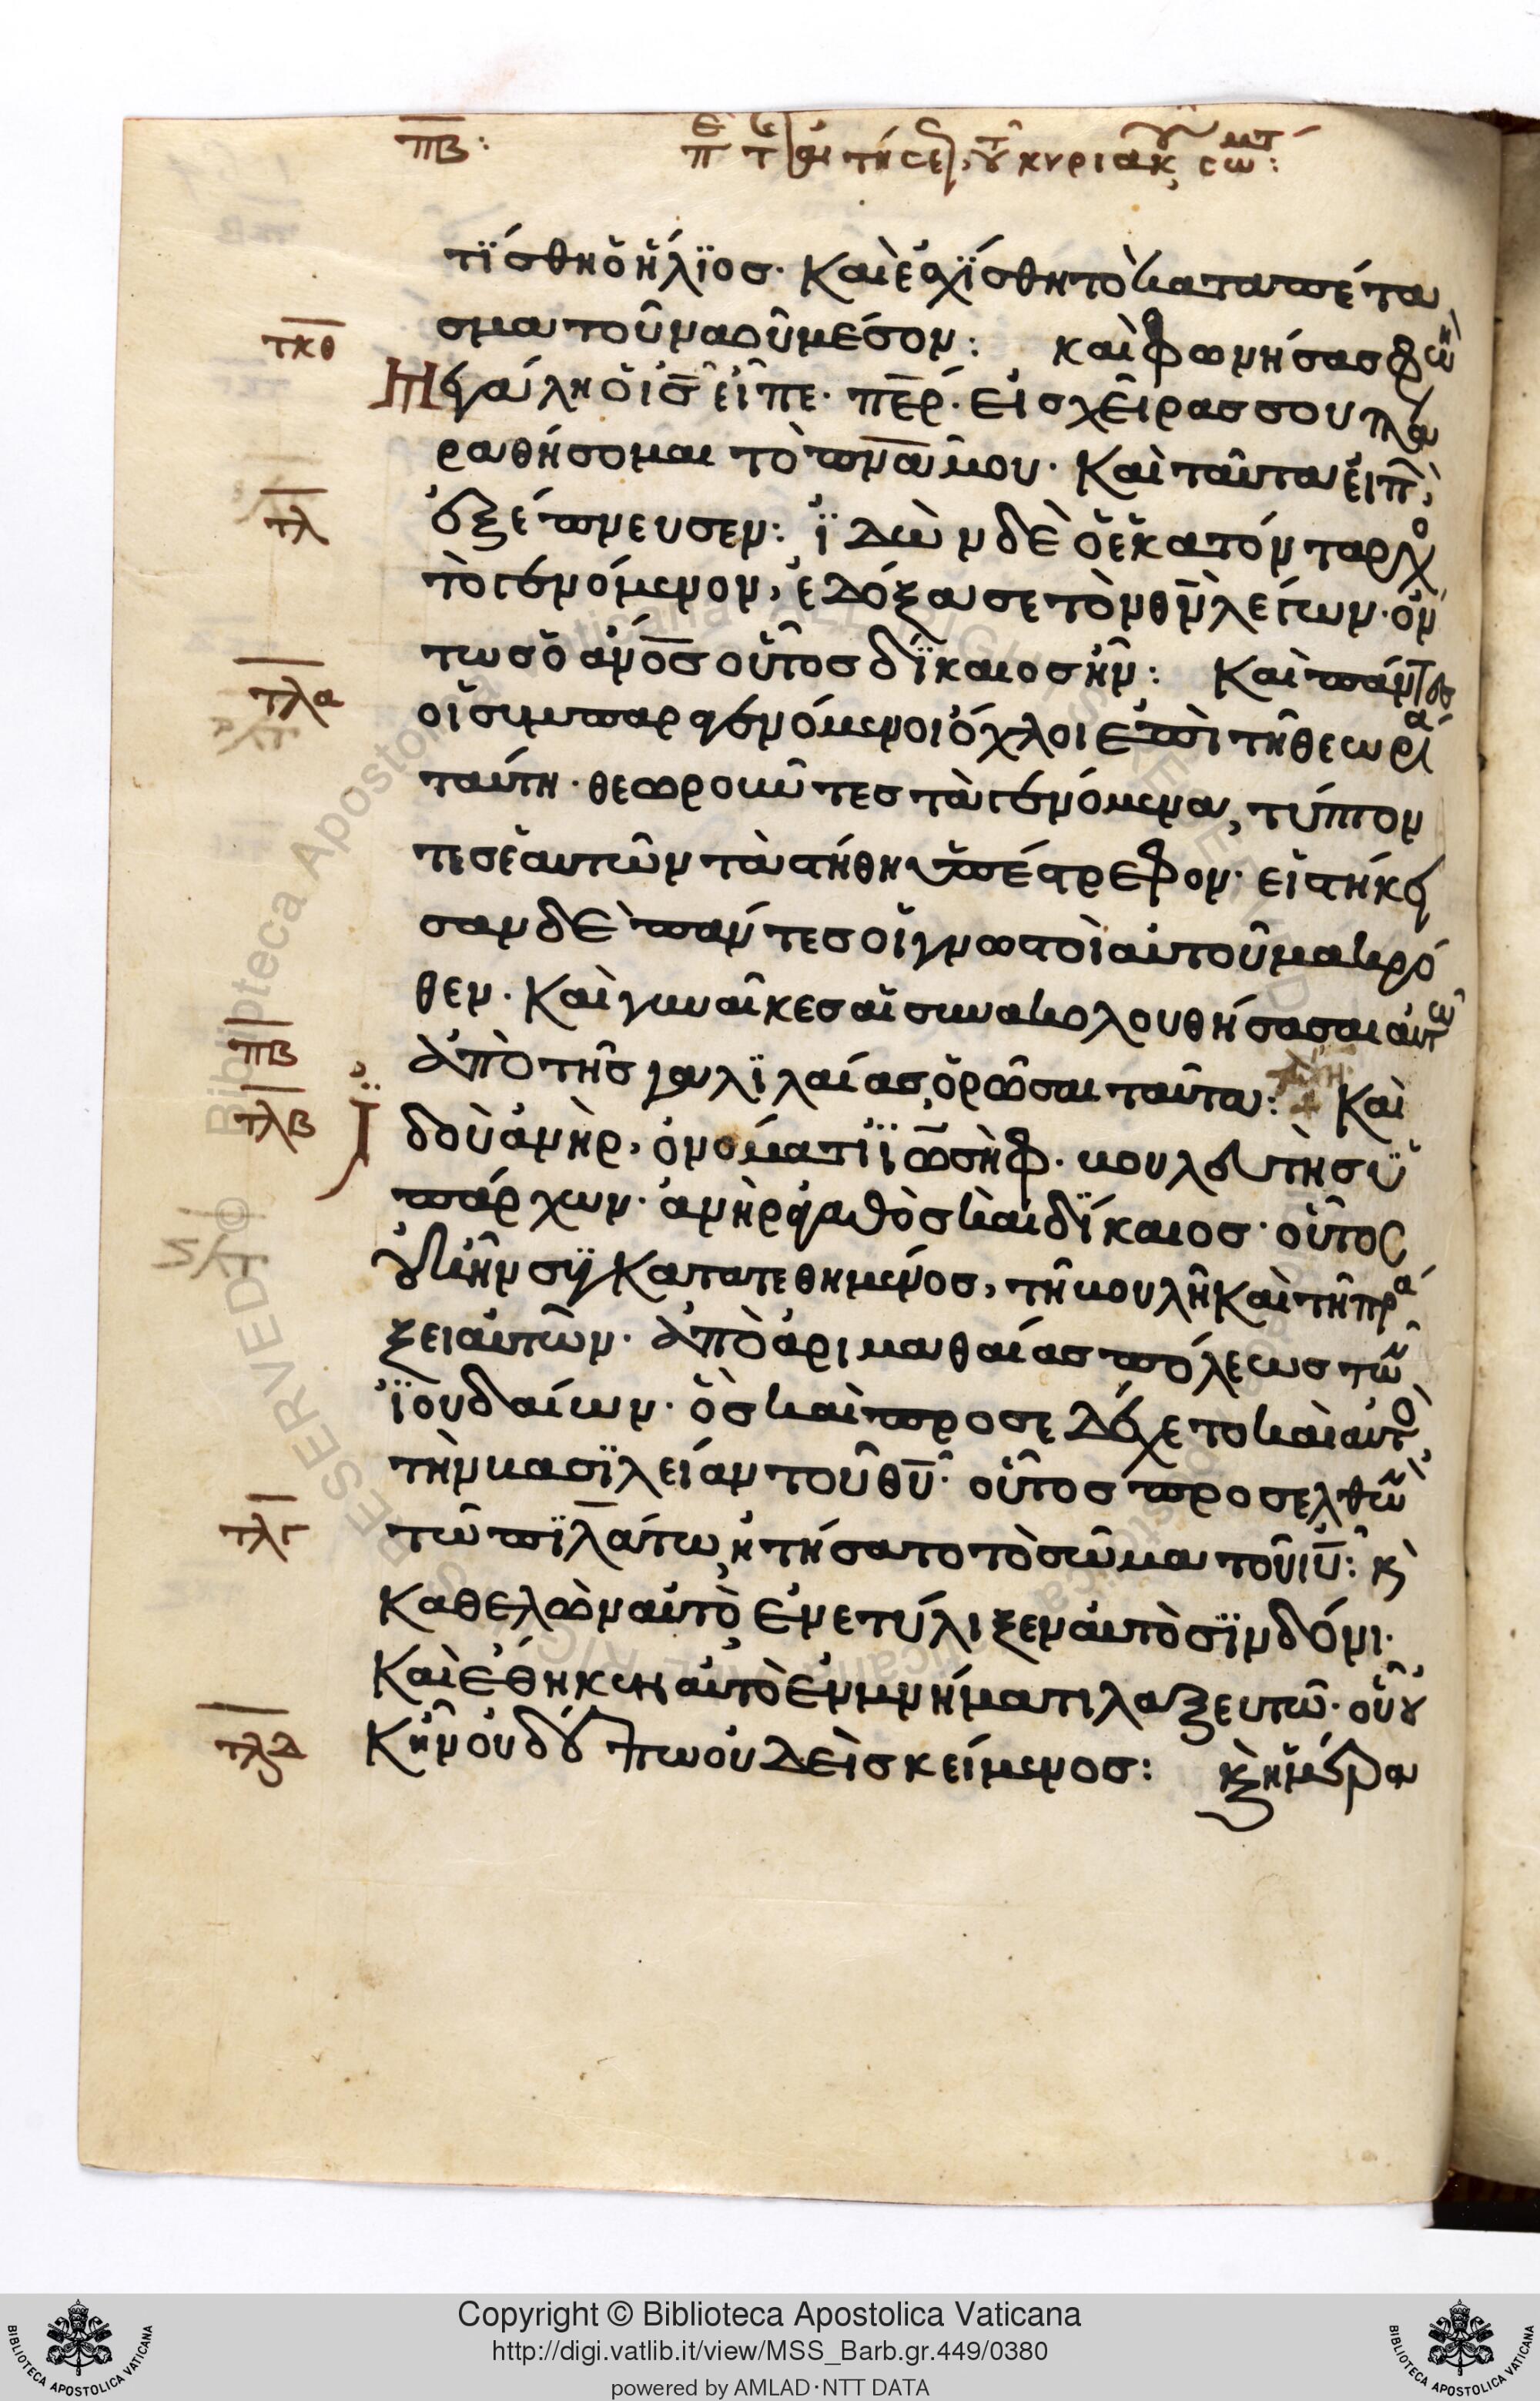 πβ: πε τ αι τήσε, τ κυριακ, σωμτ:
τΐσθη ὁ ἥλϊος. Καὶ ἐσχΐσθη τὸ καταπέτα
σμα τοῦ ναοῦ μέσον: καὶ φωνήσας φων
τκθ
Ηγάλη ὁ ις εἶπε. περ. εἰς χεῖρας σου πα
ραθήσομαι τὸ πνα μου. Καὶ ταῦτα εἰπ,
τλ
ἐξέπνευσεν: ἰδὼν δὲ ὁ ἑκατόνταρχο
τὸ γενόμενον, ἐδόξασε τὸν θν λέγων. ὄν
τως ὁ ανος οὗτος δΐκαιος ἦν: Καὶ πάντες
τλα
οἱ συμπαραγενόμενοι ὄχλοι ἐπὶ τῆ θεωρία
ταύτη. θεωροῦντες τὰ γενόμενα, τύπτον
τες ἑαυτῶν τὰ στήθη ὑπέστρεφον. εἱστήκει
σαν δὲ πάντες οἱ γνωστοὶ αὐτοῦ μακρό
θεν. Καὶ γυναῖκες αἱ συνακολουθήσασαι αὐτῶ
πβ
ἀπὸ τῆς γαλϊλαίας, ὁρῶσαι ταῦτα: Καὶ
τλβ
Ἰδοὺ ἀνὴρ, ὀνόματι ϊωσὴφ. βουλευτὴς ὑ
πάρχων. ἀνὴρ ἀγαθὸς καὶ δΐκαιος. οὗτος
οὐκ ἦν συγκατατεθημένος, τῆ βουλῆ καὶ τῆ πρά
ξει αὐτῶν. ἀπὸ ἀριμαθαίας πόλεως τῶν
ϊουδαίων. ὃς καὶ προσεδέχετο καὶ αὐτὸ,
τὴν βασϊλείαν τοῦ θυ. οὗτος προσελθὼν
τλγ
τῶ πϊλάτω, ἠτήσατο τὸ σῶμα τοῦ ιυ: κ
καθελὼν αὐτὸ, ἐνετύλιξεν αὐτὸ σϊνδόνι.
Καὶ ἔθηκεν αὐτὸ ἐν μνήματι λαξευτῶ. οὗ οὐ
τλδ
Κ ἦν οὐδέπω οὐδεὶς κείμενος: κ ἡμέρα
Copyright © Biblioteca Apostolica Vaticana
http://digi.vatlib.it/view/MSS_Barb.gr.449/0380
powered by AMLAD·NTT DATA
BIBLIOTECA APOSTOLICA VATICANA
BIBLIOTECA APOSTOLICA VATICANA